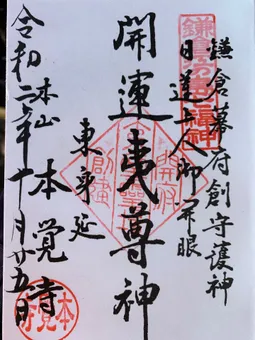 鎌倉幕府創守護神
日蓮上人御開眼
開運夷尊神
東身延
本山 本覺寺
令和二年十月廿五日
開府
創建